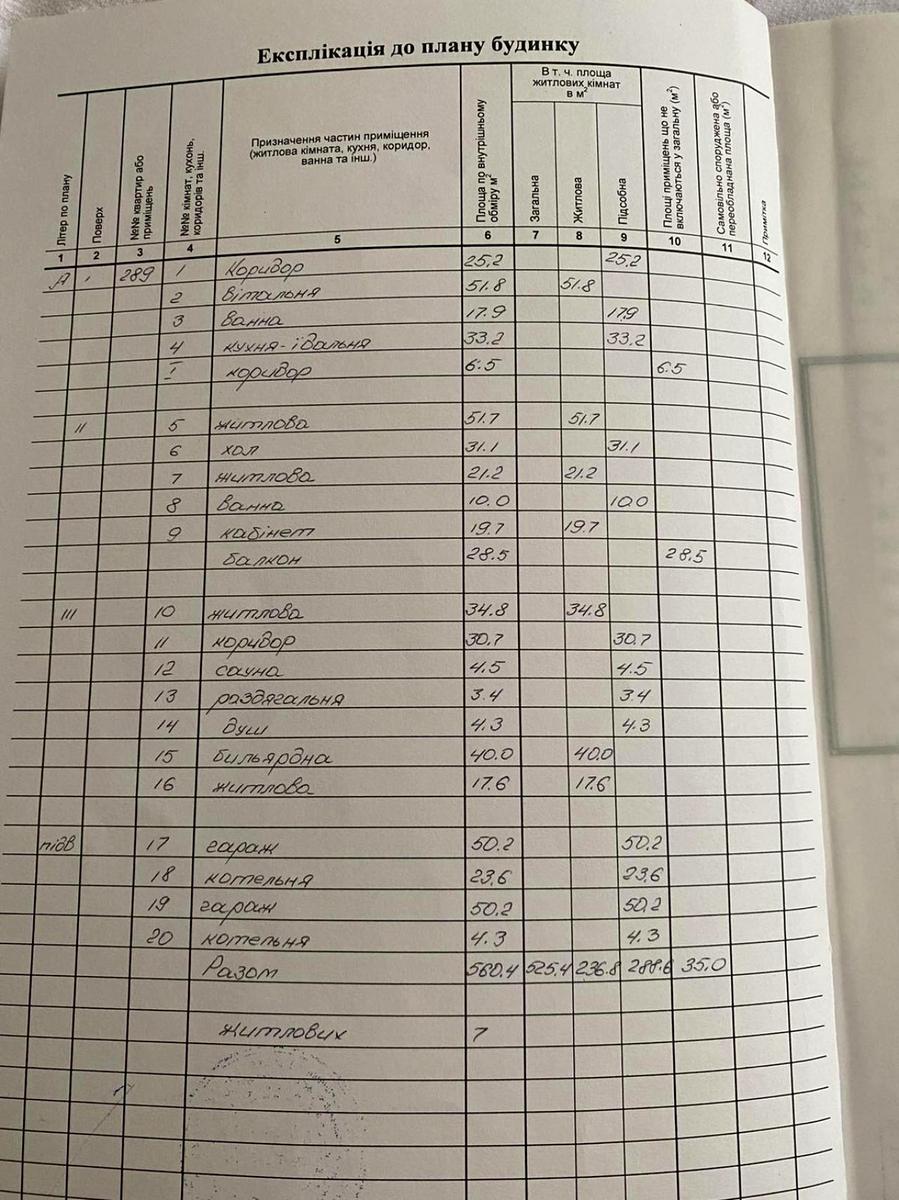 Експлікація до плану будинку
Літер по плану
Поверх
№№ квартир або приміщень
№№ кімнат, кухонь, коридорів та інш.
Призначення частин приміщення
(житлова кімната, кухня, коридор,
ванна та інш.)
Площа по внутрішньому обміру м²
В т. ч. площа
житлових кімнат
в м²
Загальна
Житлова
Підсобна
Площі приміщень що не включаються у загальну (м²)
Самовільно споруджена або переобладнана площа (м²)
Примітка
1 2 3 4 5 6 7 8 9 10 11 12
А ı 289 1 Коридор 25,2 25,2
2 вітальня 51.8 51.8
3 ванна 17.9 17,9
4 кухня-їдальня 33,2 33,2
I коридор 6.5 6.5
II 5 житлова 51.7 51.7
6 хол 31.1 31.1
7 житлова 21.2 21.2
8 ванна 10.0 10.0
9 кабінет 19.7 19.7
балкон 28.5 28.5
III 10 житлова 34.8 34.8
11 коридор 30.7 30.7
12 сауна 4.5 4.5
13 раздягальня 3.4 3.4
14 душ 4.3 4.3
15 бильярдна 40.0 40.0
16 житлова 17.6 17.6
підв 17 гараж 50.2 50.2
18 котельня 23,6 23,6
19 гараж 50,2 50,2
20 котельня 4.3 4.3
Разом 560.4 525.4 236.8 288.6 35.0
житлових 7